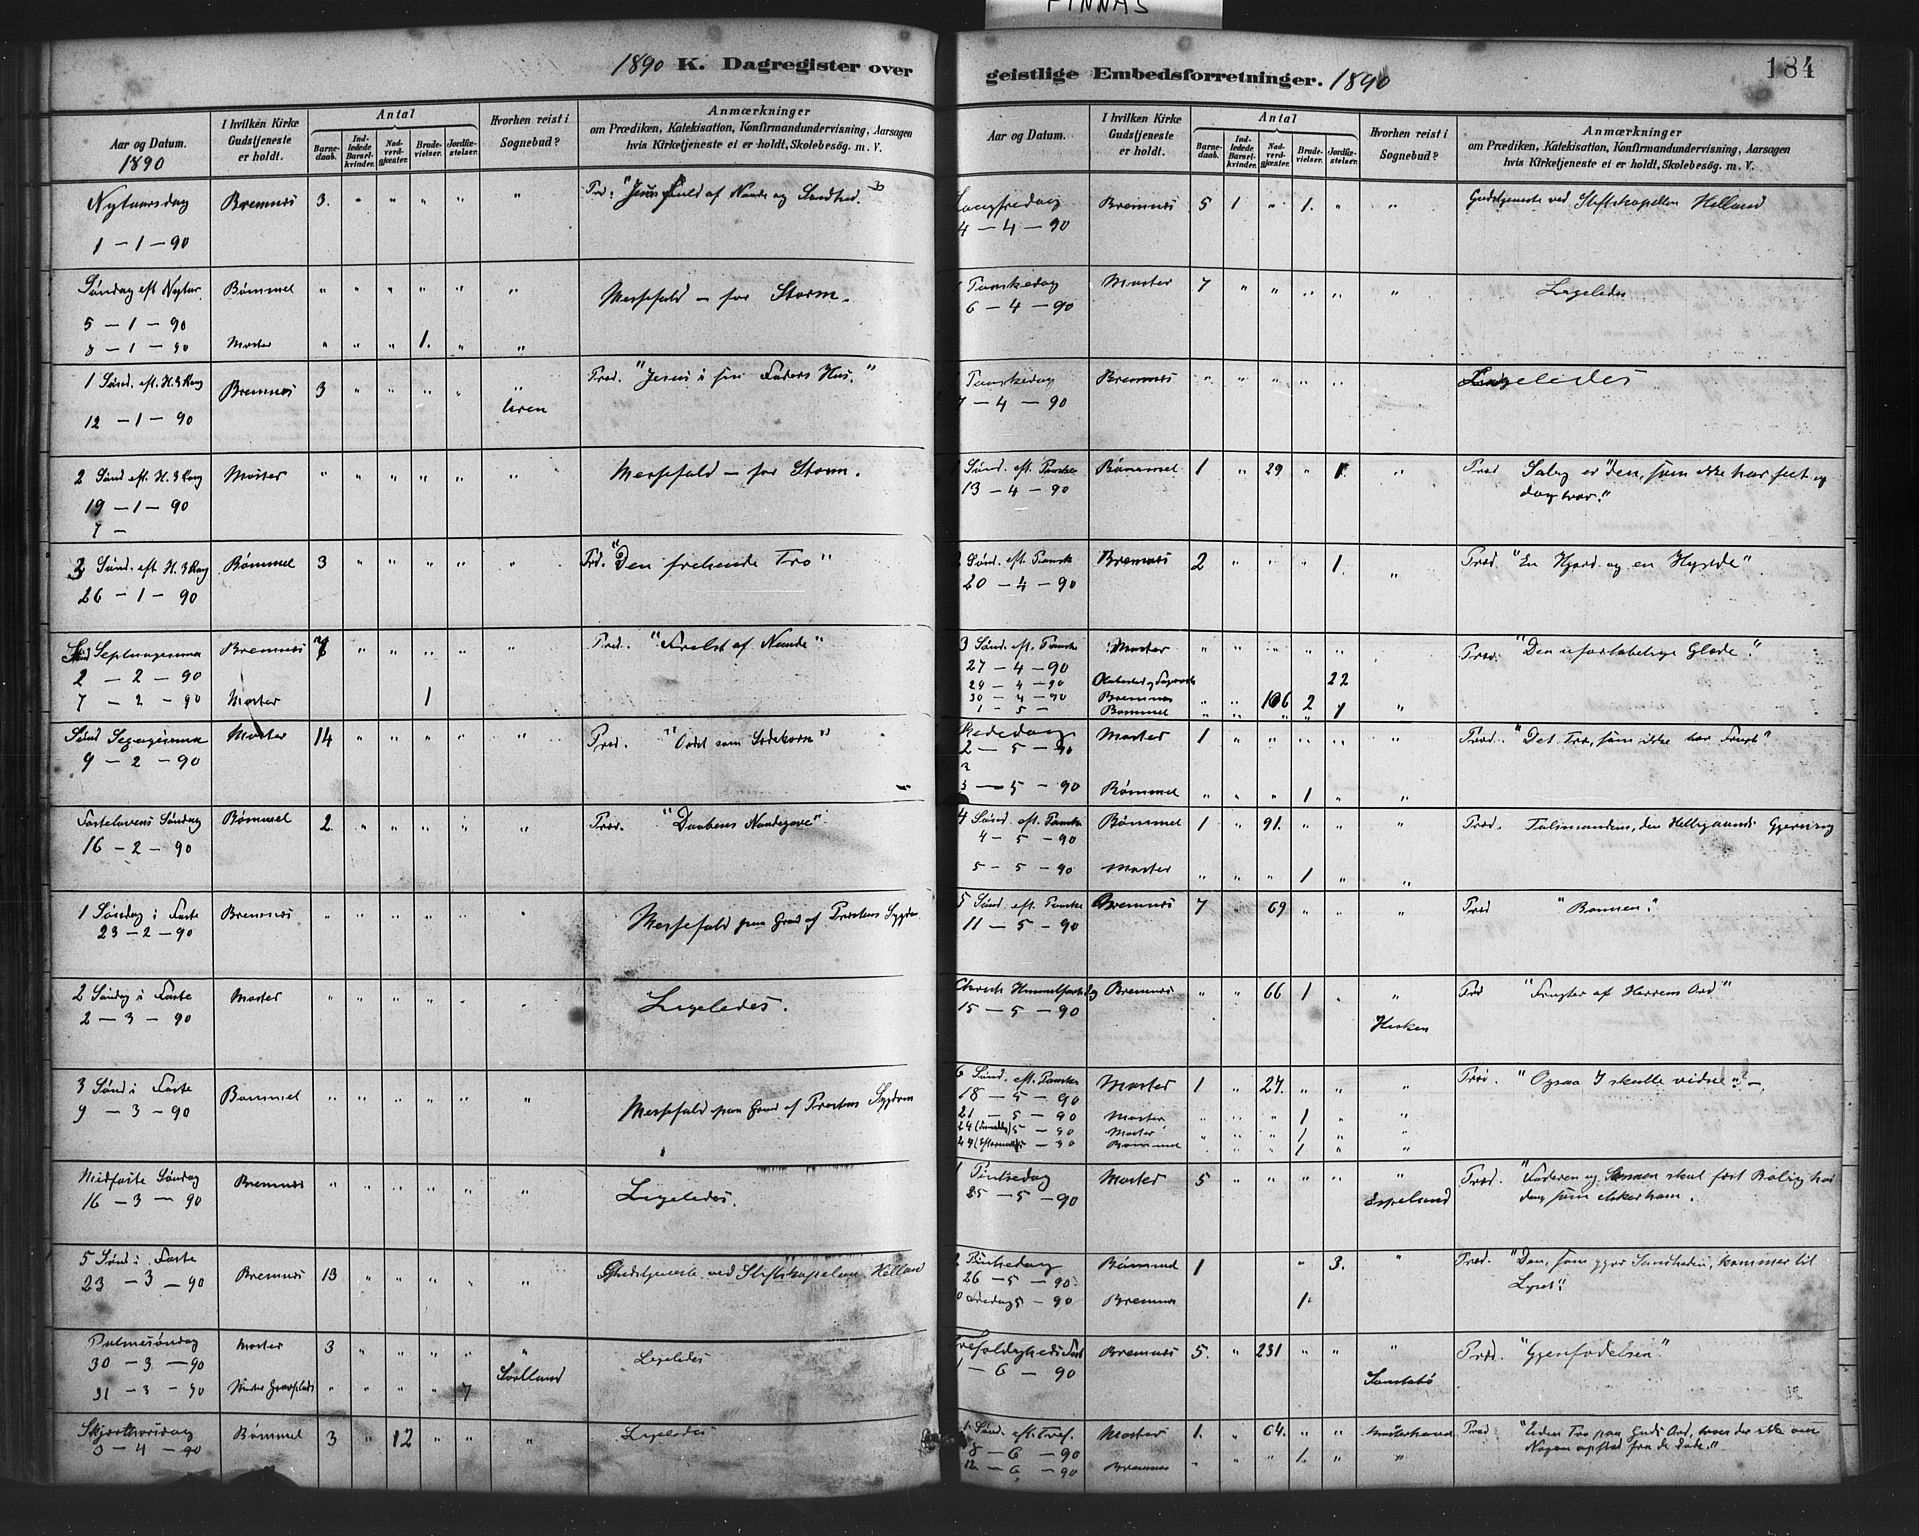 FINNÅS
184
1890 K. Dagregister over
Aar og Datum.
1890
I hvilken Kirke
Gudstjeneste
er holdt.
Antal
Barne-
daab.
Ind-
ledede
Barsel-
kvinder.
Nad-
verd-
gjæster.
Brude-
vielser.
Jordfæ-
stelser.
Hvorhen reist i
Sognebud?
Anmærkninger
om Prædiken, Katekisation, Konfirmandundervisning, Aarsagen
hvis Kirketjeneste ei er holdt, Skolebesøg. m. V.
Nytaarsdag Bremnes 3. " " " " " Præd. "Jesus fuld af Naade og Sandhed"
1 - 1 - 90
Søndag eft Nytar Bømmel " " " " " " Messefald - for Storm.
5 - 1 - 90
8 - 1 - 90 Moster " " " 1. " "
1 Sønd. eft. H. 3 Kong Bremnes 3 " " " " " Præd. "Jesus i sin Faders Hus."
12 - 1 - 90 Uren
2 Sønd eft. H. 3 Kong Moster " " " " " " Messefald - for Storm.
19 - 1 - 90
7 -
3 Sønd. eft H. 3 Kong Bømmel 3 " " " " " Prd. "Den frelsende Tro"
26 - 1 - 90
Septuagesima Bremnes " " " " " Præd. "Frelst af Naade"
2 - 2 - 90
7 - 2 - 90 Moster 1
Sønd Segagesima Moster 14 " " " " " Præd. "Ordet som Sædekorn"
9 - 2 - 90
Fastelavens Søndag Bømmel 2 " " " " " Præd. "Daabens Naadegave"
16 - 2 - 90
1 Søndag i Faste Bremnes " " " " " " Messefald paa Grund af Præstens Sygdom
23 - 2 - 90
2 Søndag i Faste Moster " " " " " " Ligeledes.
2 - 3 - 90
3 Sønd i Faste Bømmel " " " " " " Messefald paa Grund af Præstens Sygdom
9 - 3 - 90
Midfaste Søndag Bremnes " " " " " " Ligeledes.
16 - 3 - 90
5 Sønd i Faste Bremnes 13 " " " " " Gudstjeneste ved Stiftskapelan Helland
23 - 3 - 90
Palmesøndag Moster 3 " " " " " Ligeledes
30 - 3 - 90 Sørlland
31 - 3 - 90 Moster Gravplads " " " " 7
Skjærthorsdag Bømmel 3 " 12 " " " Ligeledes
3 - 4 - 90
geistlige Embedsforretninger. 1890
Aar og Datum.
I hvilken Kirke
Gudstjeneste
er holdt.
Antal
Barne-
daab.
Ind-
ledede
Barsel-
kvinder.
Nad-
verd-
gjæster.
Brude-
vielser.
Jordfæ-
stelser.
Hvorhen reist i
Sognebud?
Anmærkninger
om Prædiken, Katekisation, Konfirmandundervisning, Aarsagen
hvis Kirketjeneste ei er holdt, Skolebesøg. m. V.
Langfredag Bremnes 5 1 " 1. " " Gudstjeneste ved Stiftskapellan Helland
4 - 4 - 90
Paaskedag Moster 7 " " " " " Ligeledes
6 - 4 - 90
Paaskedag Bremnes " " " " " " Ligeledes
7 - 4 - 90
1 Sønd. eft. Paaske Bømmel 1 " 29 " 1. " Præd Salig er "den, som ikke har seet og
13 - 4 - 90 dog tror."
2 Sønd. eft. Paaske Bremnes 2 " " " 1. " Præd. "En Hjord og en Hyrde"
20 - 4 - 90
3 Sønd eft. Paaske Moster " " " " " Præd. "Den uforkrænkelige Glæde".
27 - 4 - 90
29 - 4 - 90 22
30 - 4 - 90 Bremnes " " 106 2 "
1 - 5 - Bømmel " " " " 1
Bededag Moster 1 " " " " " Præd. "Det Tro, som ikke bær Frugt"
2 - 5 - 90
3 - 5 - 90 Bømmel " " " 1 " "
4 Sønd. eft. Paaske Bømmel 1 " 91. " " " Præd. Talsmandens, den Helligaands Gjerning
4 - 5 - 90
5 - 5 - 90 Moster " " " 1 " "
5 Sønd. eft. Paaske Bremnes 7 " 69 " " " Præd "Bønnen".
11 - 5 - 90
Christi Himmelfartsdag Bremnes " " 66 1 " " Præd "Frugter af Herrens Ord"
15 - 5 - 90 Hisken
6 Sønd. eft. Paaske Moster 1 " 27. " " " Præd. "Ogsaa I skulle vidne"! -
18 - 5 - 90
21 - 5 - 90 Moster " " " 1 " "
24 5 - 90 Moster " " " 1 "
24 - 90 Bømmel 1 " "
1 Pintsedag Moster 5 " " " " " Præd. "Faderen og Sønnen skal fæst Bolig hos
25 - 5 - 90 Espeland den, som elsker ham.
2 Pintsedag Bømmel 1 " 3. " Præd. "Den, som gjør Sandheden, kommer til
26 - 5 - 90 Lyset"
Fredag 5 - 90 Bremnes 1.
Trefoldigheds Fest Bremnes 5. " 231 " " " Præd. "Gjenfødelsen"
1 - 6 - 90 Samstabø
1 Sønd. eft Tref. Moster 1. " 64. " " Præd "Uden Tro paa Guds Ord, troer de ikke om
8 - 6 - 90 Nogen opstod fra de døde."
12 - 6 - 90 Bremnes " " " 1. " "